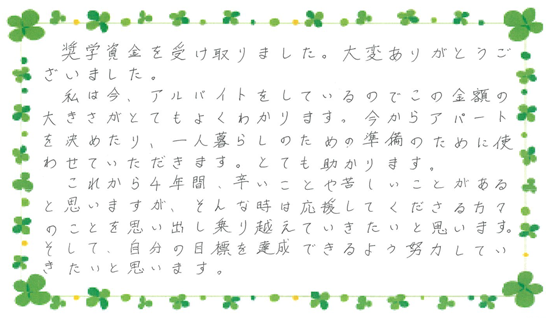 奨学資金を受け取りました。大変ありがとうご
ざいました。
私は今、アルバイトをしているのでこの金額の
大きさがとてもよくわかります。今からアパート
を決めたり、一人暮らしのための準備のために使
わせていただきます。とても助かります。
これから4年間、辛いことや苦しいことがある
と思いますが、そんな時は応援してくださる方々
のことを思い出し乗り越えていきたいと思います。
そして、自分の目標を達成できるよう努力してい
きたいと思います。